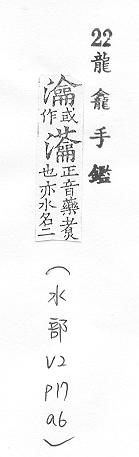 22
龍龕手鑑
瀹或作𤅢正音藥煮
也亦水名二
(水部
V2
P17
a6)